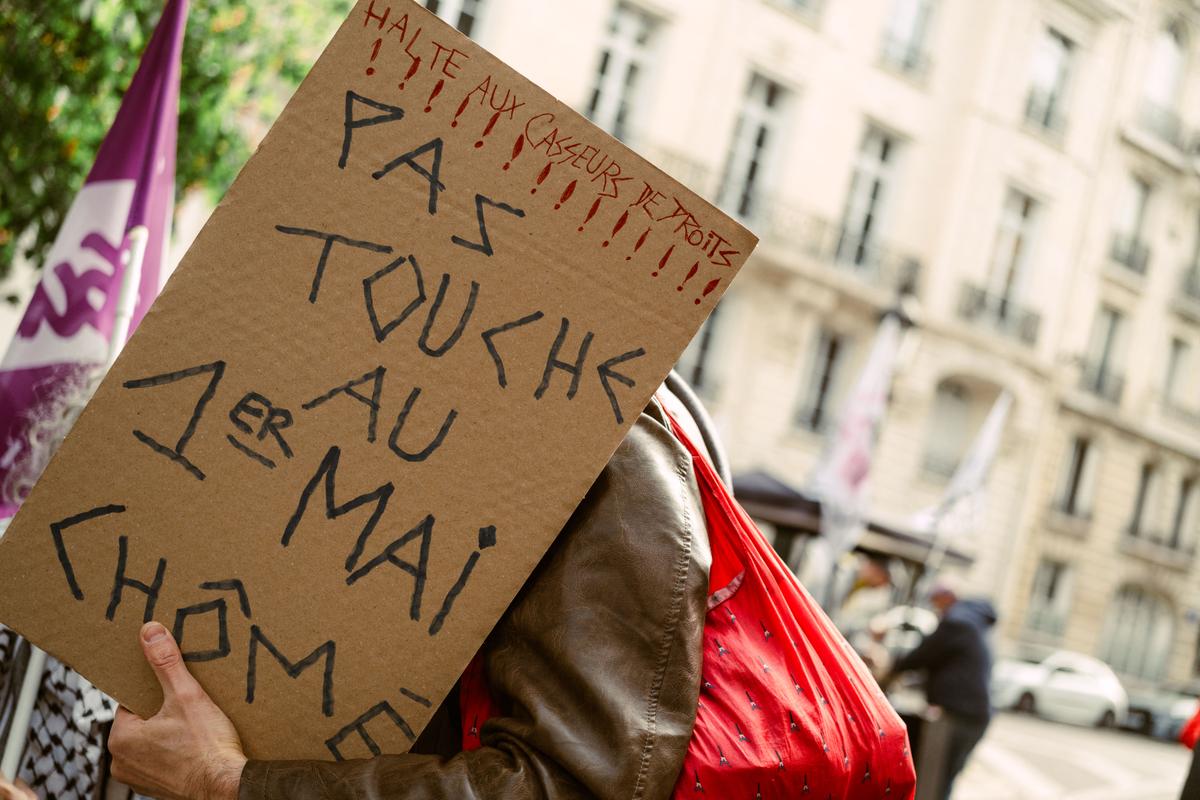 HALTE AUX CASSEURS DE DROITS
! ! ! ! ! ! ! ! ! ! ! ! ! !
PAS
TOUCHE
AU
1ER
MAI
CHÔMÉ